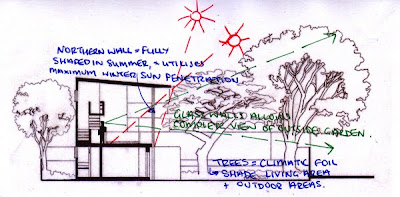 NORTHERN WALL = FULLY
SHADED IN SUMMER, + UTILISES
MAXIMUM WINTER SUN PENETRATION
GLASS WALLS ALLOWS
COMPLETE VIEW OF OUTSIDE GARDEN.
TREES = CLIMATIC FOIL
↳ SHADE LIVING AREA
+ OUTDOOR AREAS.